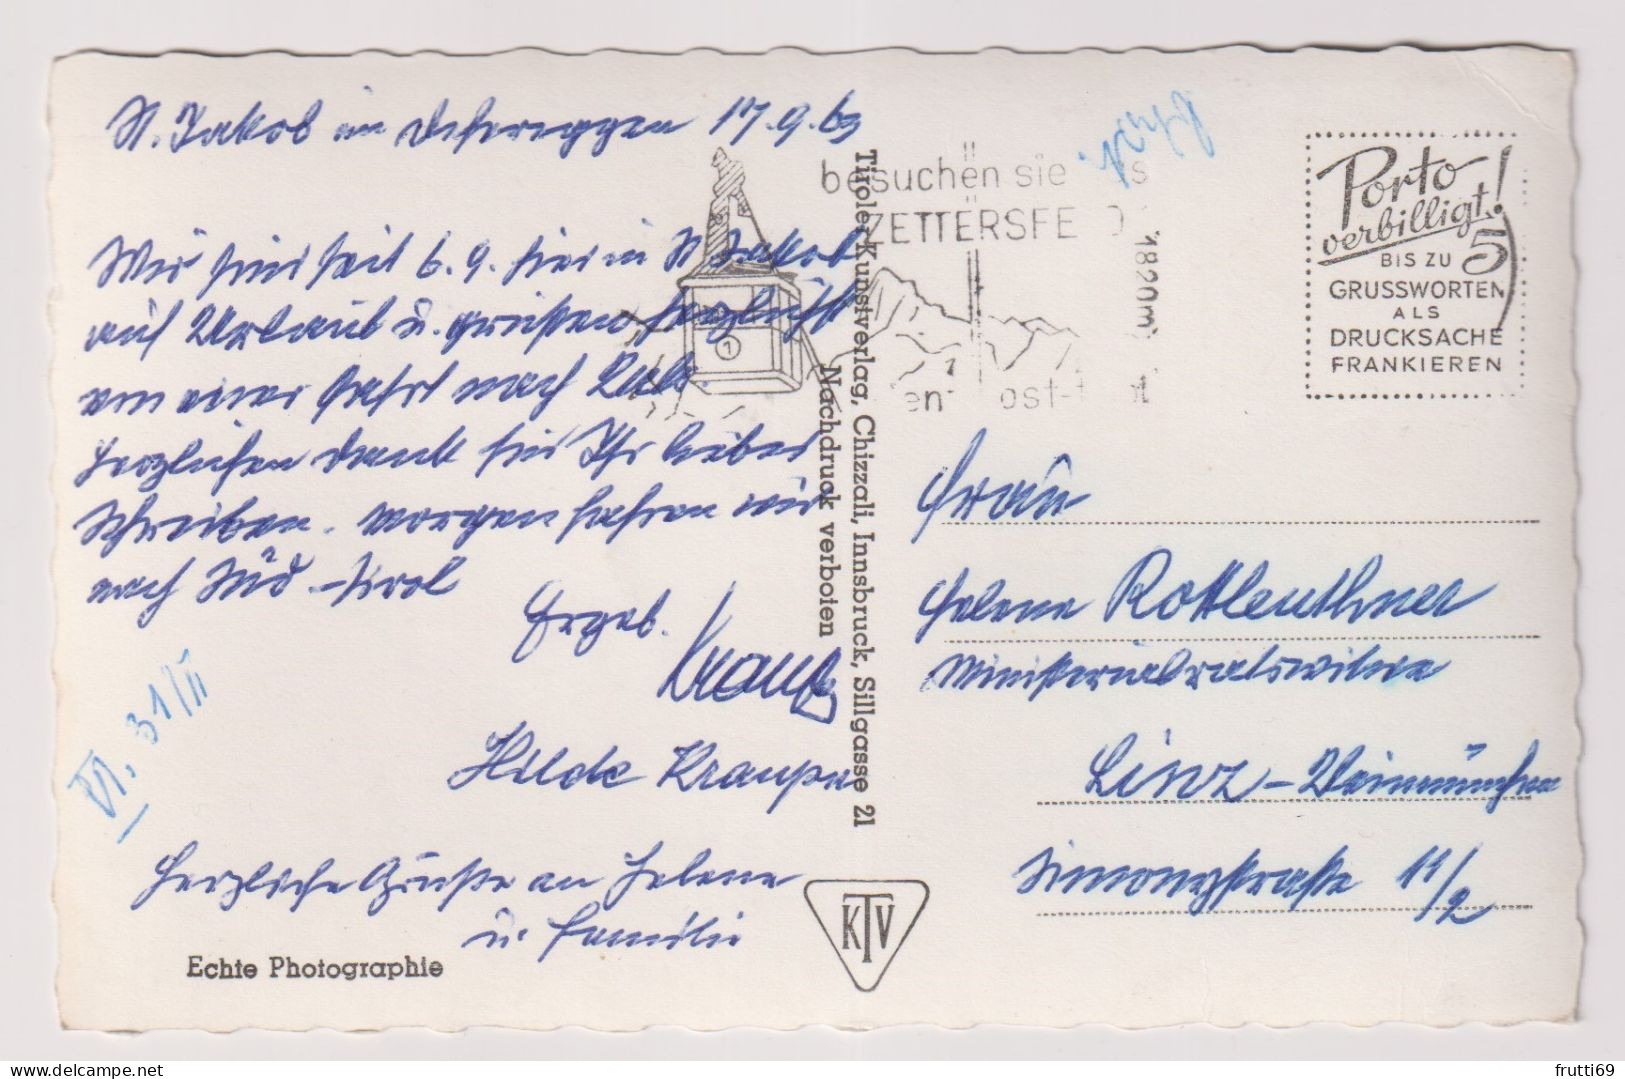 St. Jakob in Defereggen 17.9.63
Wir sind seit 6.9. hier in St Jakob
auf Urlaub u. grüßen herzlichst
von einer Fahrt nach Kals.
Herzlichen Dank für Ihr liebes
Schreiben. Morgen fahren wir
nach Süd-Tirol
Ergeb.
Hilde
Herzliche Grüße an Helene
u. Familie
Echte Photographie
VI. 31/II
Tiroler Kunstverlag, Chizzali, Innsbruck, Sillgasse 21
Nachdruck verboten
KTV
besuchen sie
ZETTERSFE D
1820m
ost-
Porto
verbilligt!
BIS ZU 5
GRUSSWORTEN
ALS
DRUCKSACHE
FRANKIEREN
Frau
Helene Rottleuthner
Ministerialratswitwe
Linz-
Simonystraße 11/2
frutti69